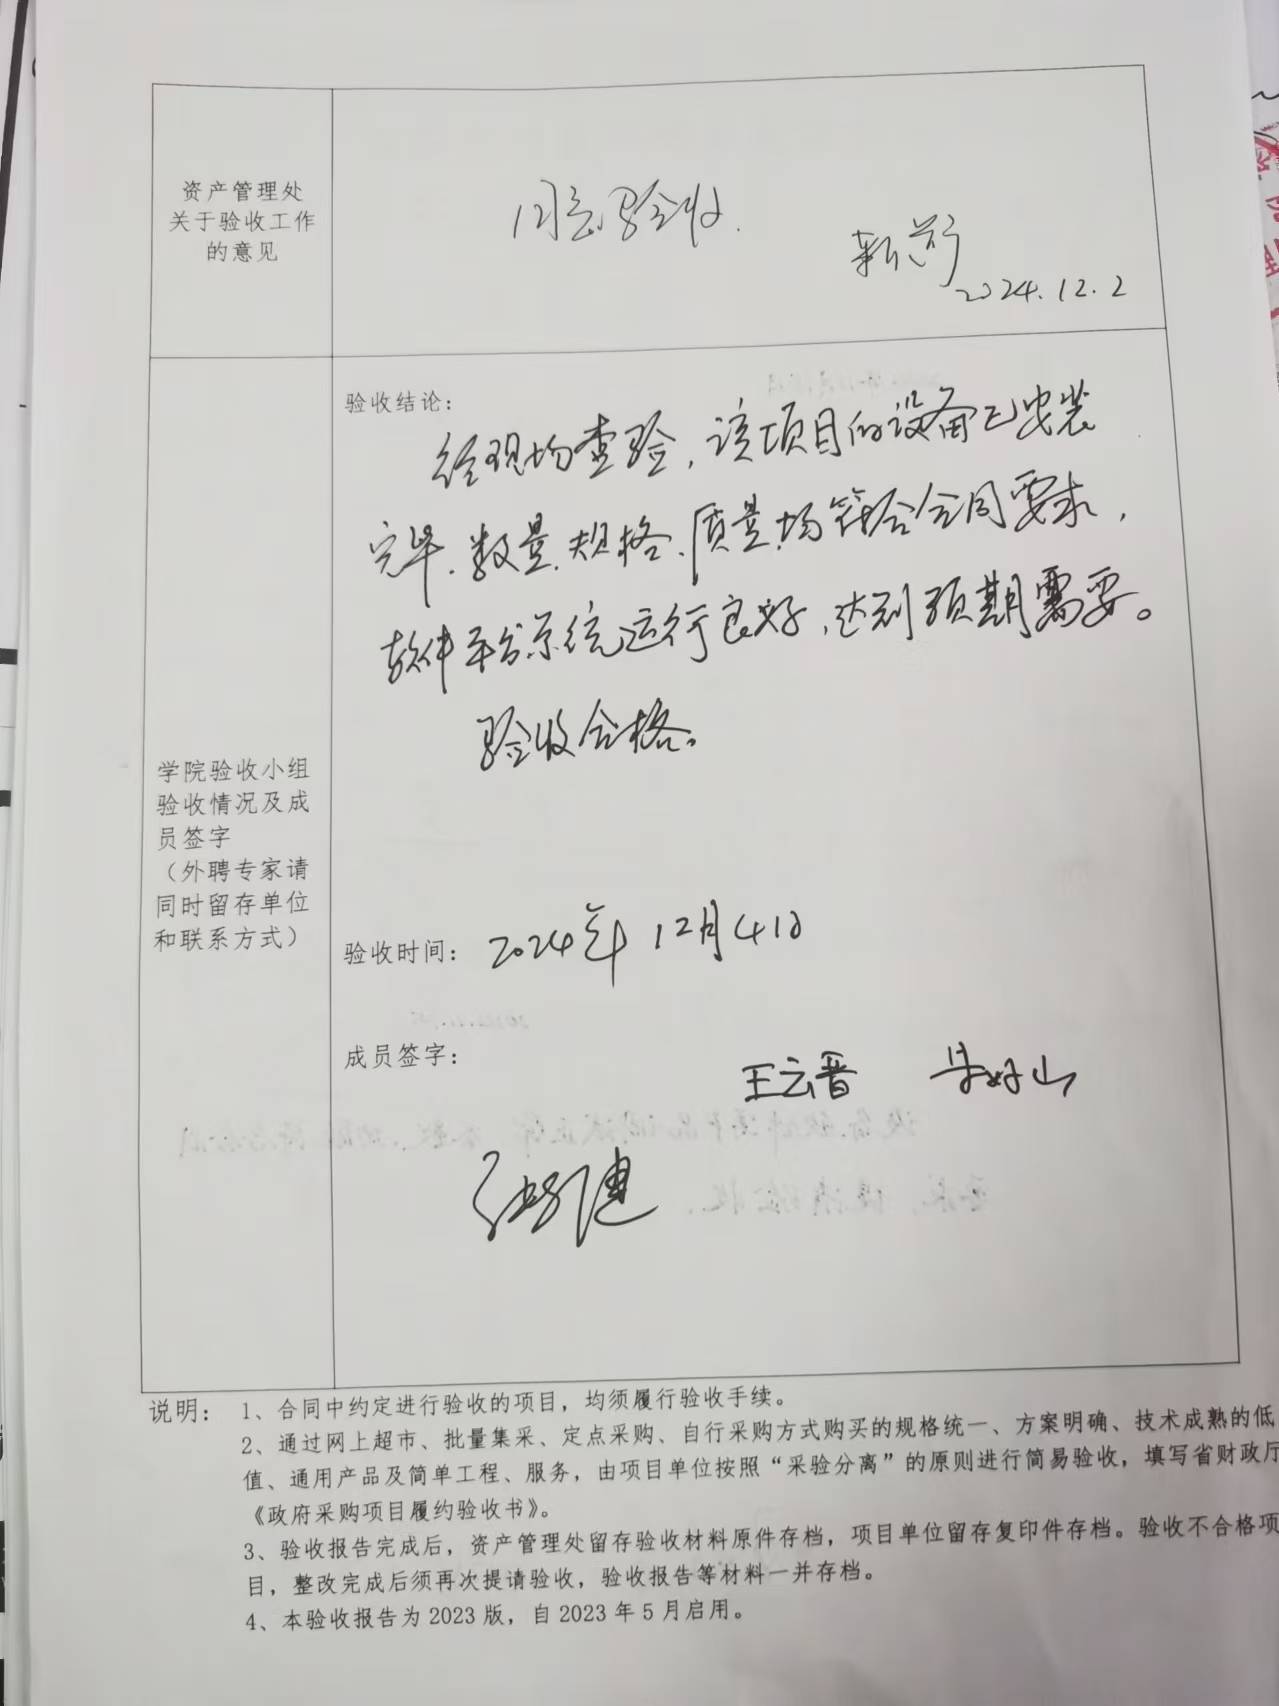 资产管理处
关于验收工作
的意见
同意验收.
2024.12.2
验收结论：
经现场查验，该项目的设备已安装
完毕、数量、规格、质量均符合合同要求，
软件平台系统运行良好，达到预期需要。
验收合格。
学院验收小组
验收情况及成
员签字
（外聘专家请
同时留存单位
和联系方式）
验收时间：2024年12月4日
成员签字：
王云晋
说明：1、合同中约定进行验收的项目，均须履行验收手续。
2、通过网上超市、批量集采、定点采购、自行采购方式购买的规格统一、方案明确、技术成熟的低
值、通用产品及简单工程、服务，由项目单位按照“采验分离”的原则进行简易验收，填写省财政厅
《政府采购项目履约验收书》。
3、验收报告完成后，资产管理处留存验收材料原件存档，项目单位留存复印件存档。验收不合格项
目，整改完成后须再次提请验收，验收报告等材料一并存档。
4、本验收报告为2023版，自2023年5月启用。